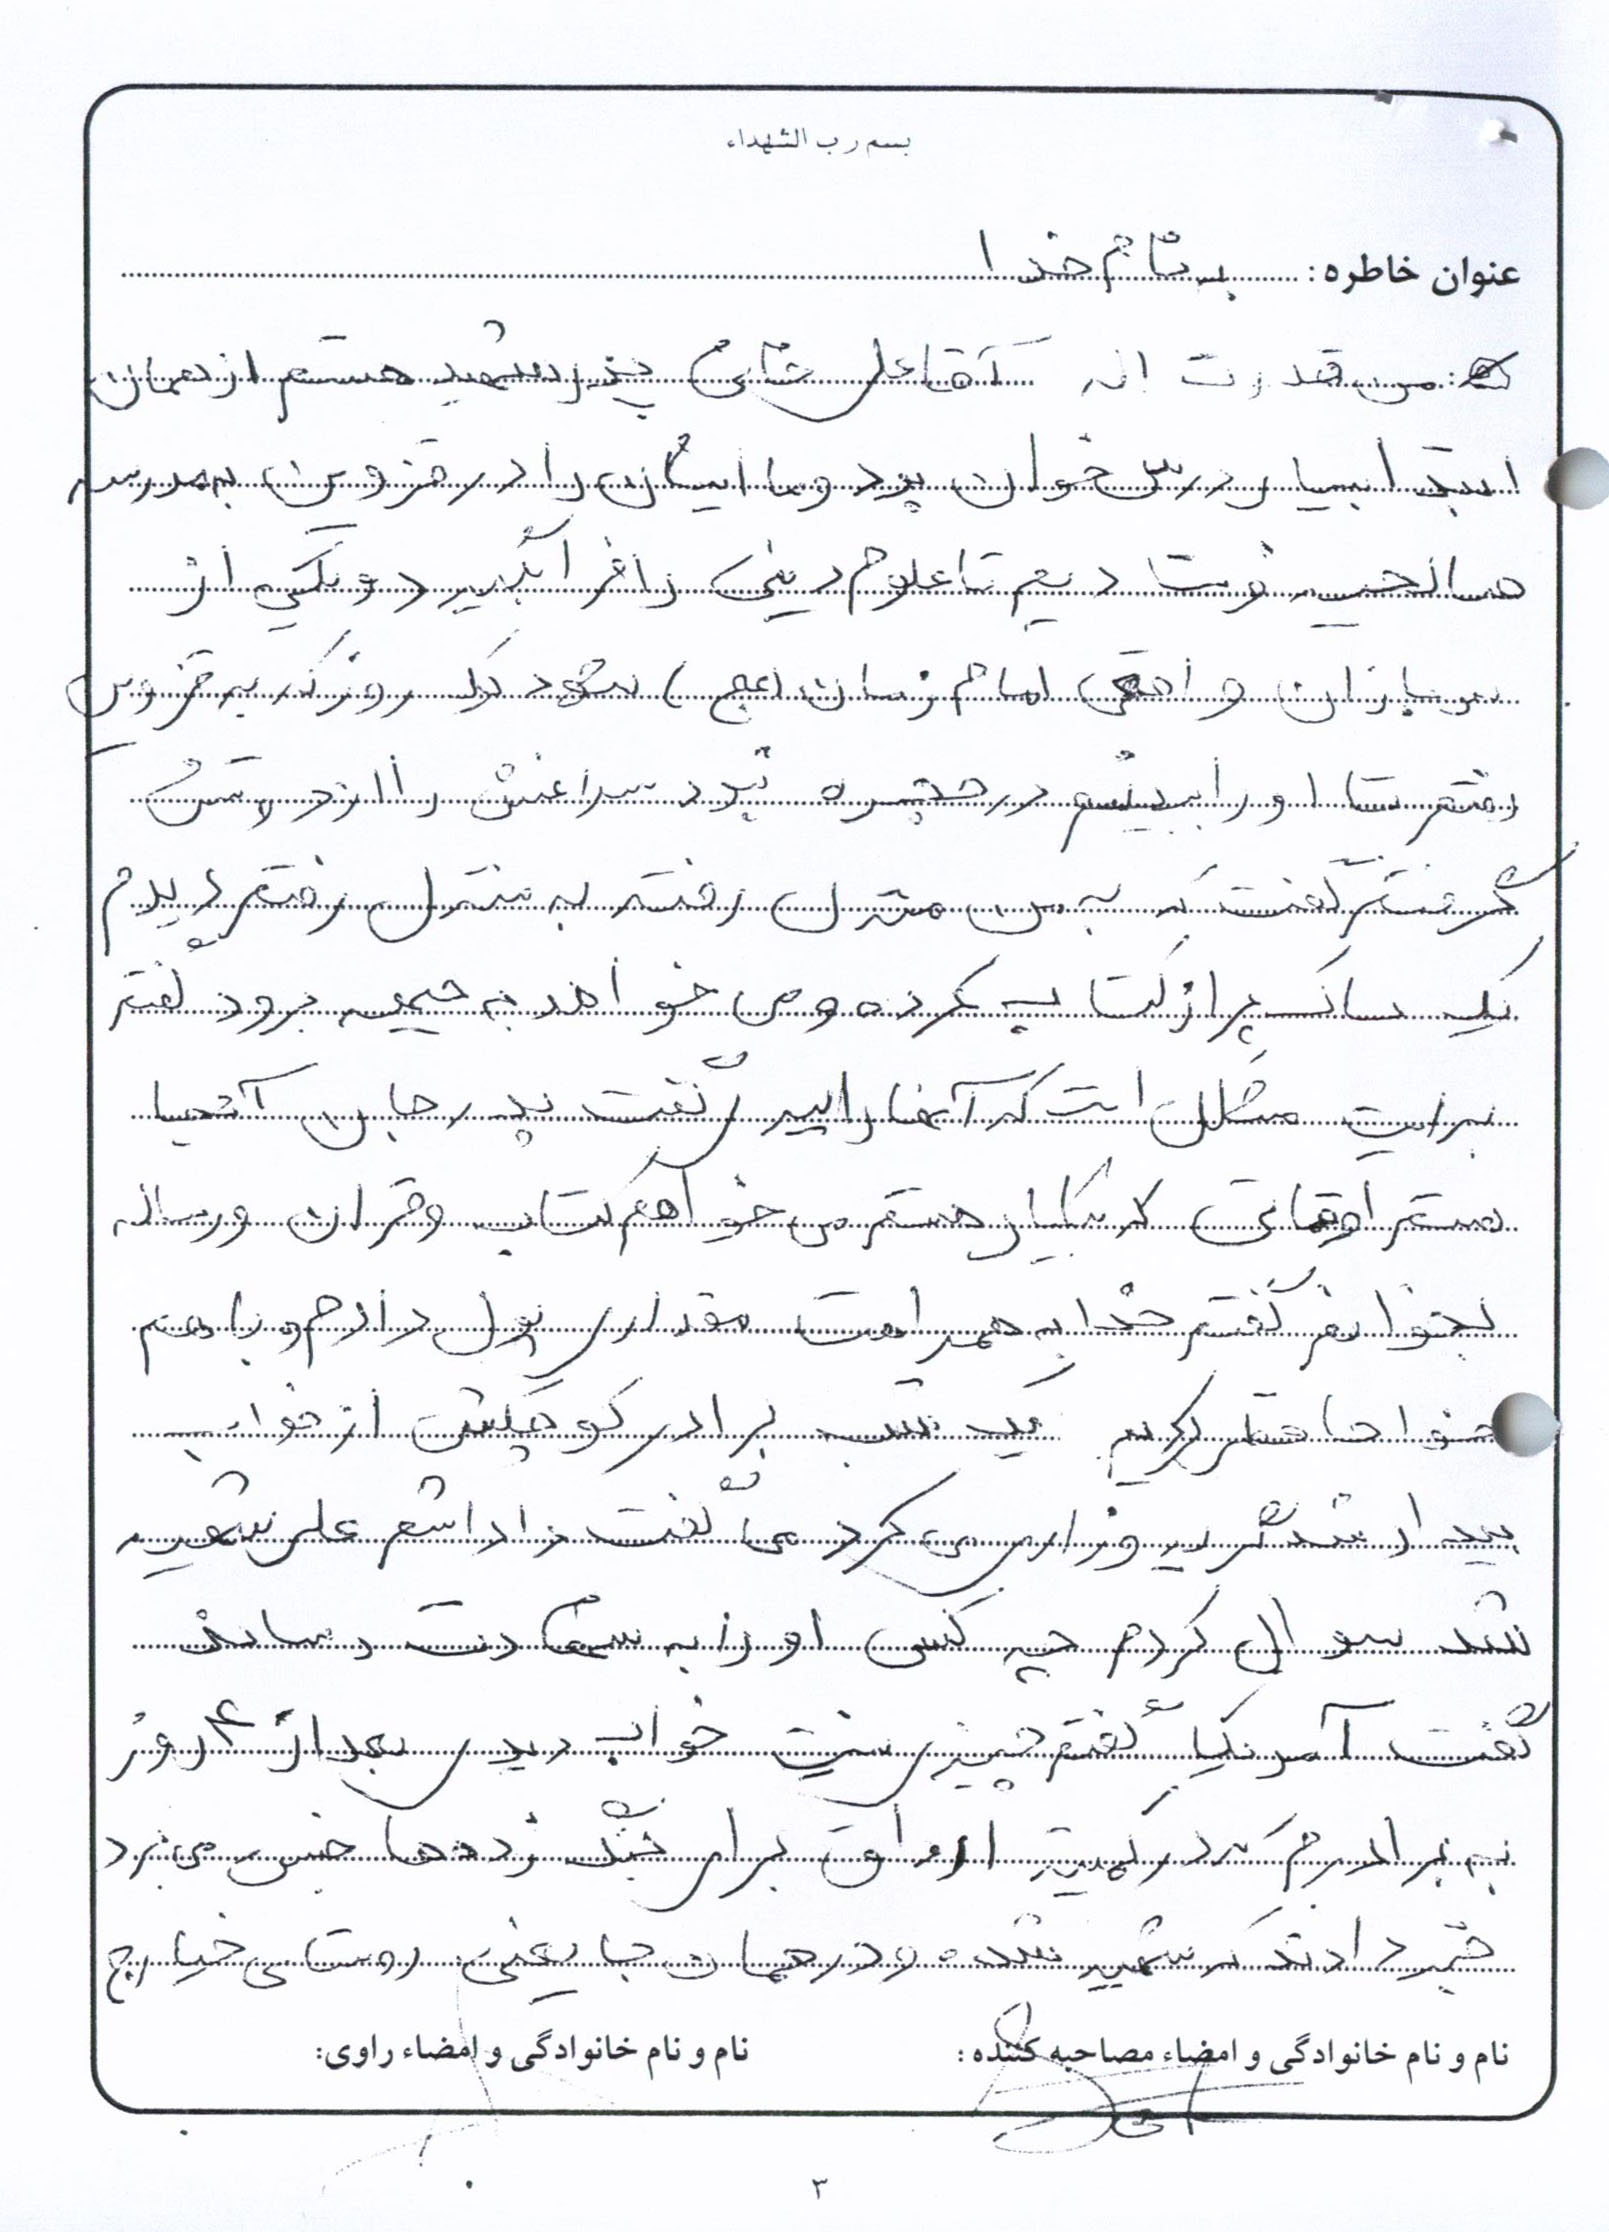 بسم رب الشهداء
عنوان خاطره: به نام خدا
من قدرت اله آقاعلی خانی پدر شهید هستم از همان
ابتدا بسیار درس خوان بود و ما ایشان را در قزوین به مدرسه
صالحیه فرستادیم تا علوم دینی را فرا بگیرد و یکی از
سربازان واقعی امام زمان (عج) شود یک روز که به قزوین
رفتم تا او را ببینم در حجره نبود سراغش را از دوستش
گرفتم گفت که به منزل رفته به منزل رفتم دیدم
یک ساک پر از کتاب کرده و می خواهد به جبهه برود گفتم
برایت مشکل است که آنها را ببری گفت پدر جان آنجا
هستم اوقاتی که بیکار هستم می خواهم کتاب و قران و رساله
بخوانم گفتم خدا به همراهت مقداری پول دادم و با هم
خداحافظی کردیم یک شب برادر کوچکش از خواب
بیدار شد گریه و زاری می کرد می گفت داداشم علی شهید
شد سوال کردم چه کسی او را به شهادت رساند
گفت آمریکا گفتم چیزی نیست خواب دیدی بعد از ۴ روز
به برادرم که در کمیته امداد برای جنگ زده ها جنس می برد
خبر دادند که شهید شده و در همان جا یعنی روستای خیارج
نام و نام خانوادگی و امضاء مصاحبه کننده: نام و نام خانوادگی و امضاء راوی:
۳